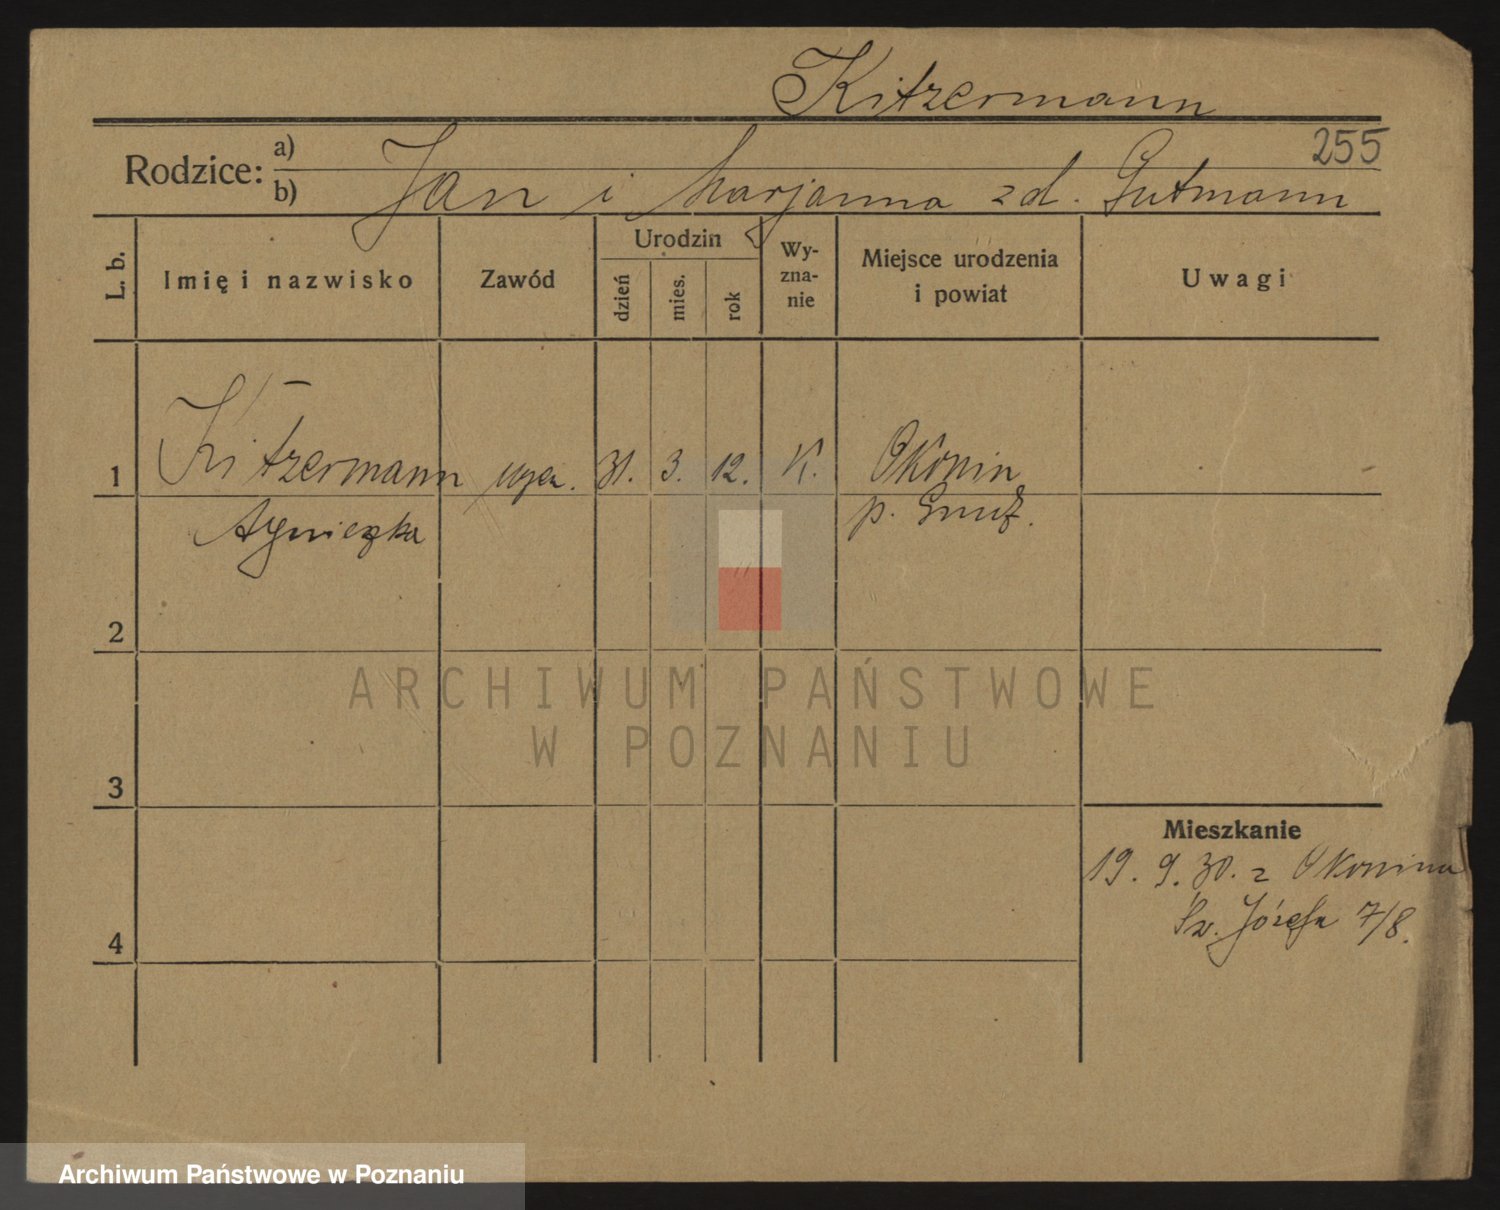 Kitzermann
255
Rodzice: a)
b) Jan i Marjanna zd. Gutmann
L. b.
Imię i nazwisko
Zawód
Urodzin
dzień
mies.
rok
Wy-
zna-
nie
Miejsce urodzenia
i powiat
Uwagi
1 Kitzermann 31. 3. 12. K. Okonin
Agnieszka p.
2
3
4
Mieszkanie
19. 9. 30. z Okonina
Św. Józefa 7/8.
ARCHIWUM PAŃSTWOWE
W POZNANIU
Archiwum Państwowe w Poznaniu